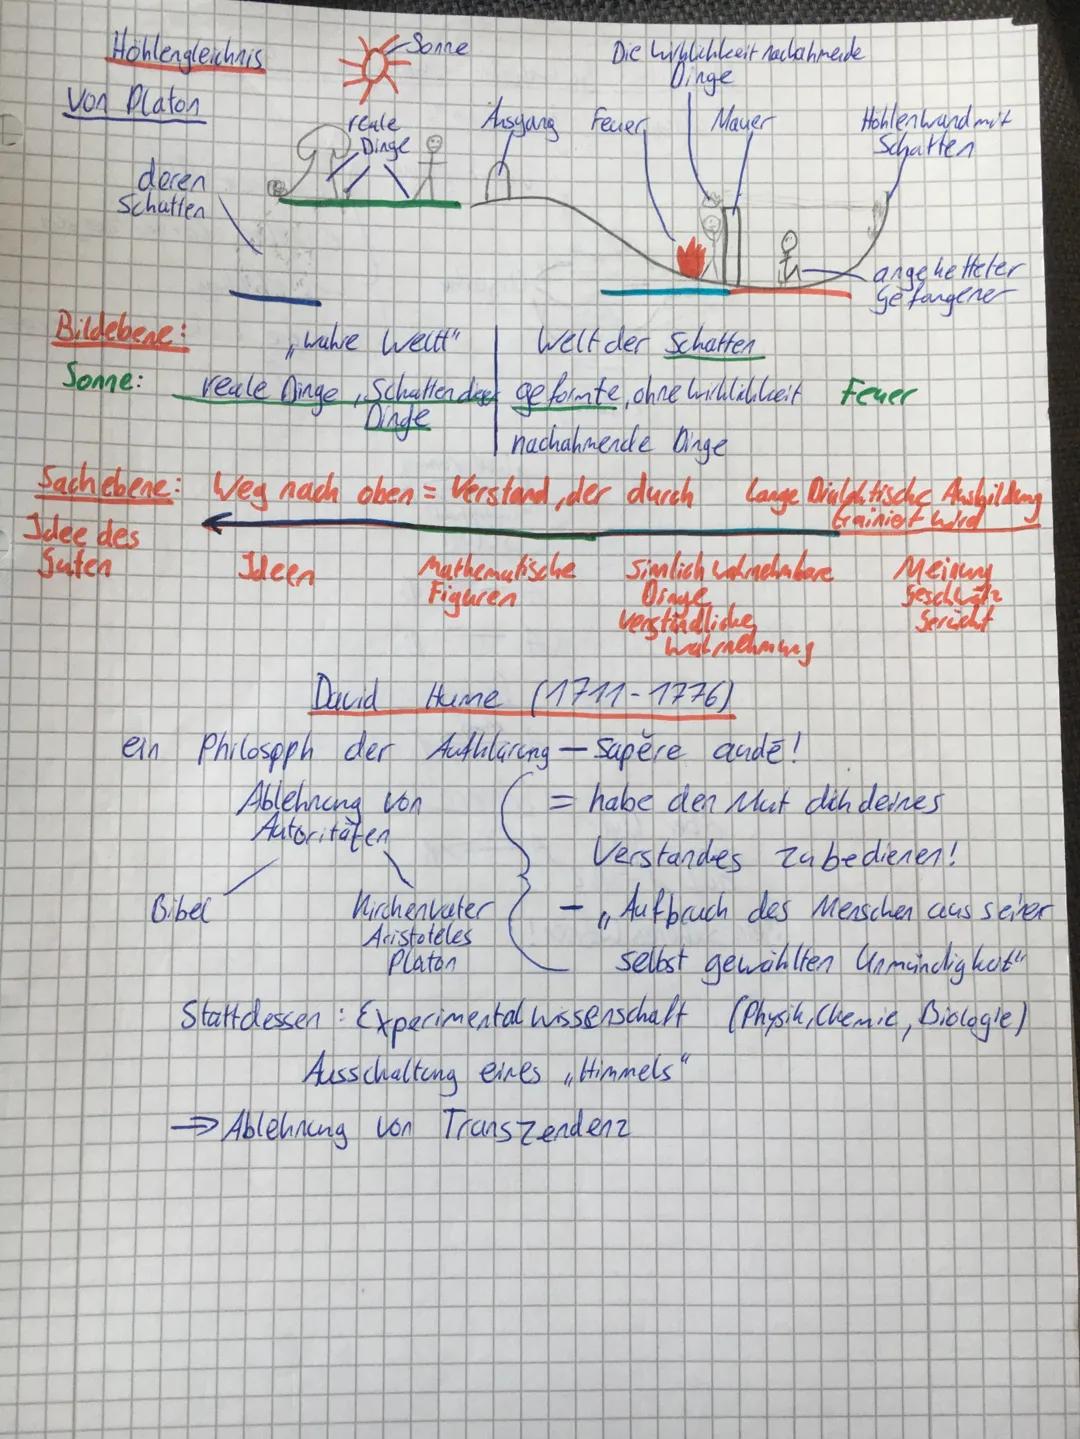 Höhlengleichnis
von Platon
Sonne
Die Wirklichkeit nachahmende
Dinge
reale
Dinge
Ausgang
Feuer
Mauer
Höhlenwand mit
Schatten
deren
Schatten
angeketteter
Gefangener
Bildebene:
„wahre Welt“
Welt der Schatten
Sonne:
reale Dinge, Schatten der
Dinge
geformte, ohne Wirklichkeit
nachahmende Dinge
Feuer
Sachebene: Weg nach oben = Verstand, der durch lange Dialektische Ausbildung
trainiert wird
Idee des
Guten
Ideen
Mathematische
Figuren
Sinnlich wahrnehmbare
Dinge
Wahrnehmung
Meinung
Geschwätz
Gerücht
David Hume (1711-1776)
ein Philospph der Aufklärung — Sapēre audē!
Ablehnung von
Autoritäten
Bibel
Kirchenväter
Aristoteles
Platon
= habe den Mut dich deines
Verstandes zu bedienen!
- „Aufbruch des Menschen aus seiner
selbst gewählten Unmündigkeit“
Stattdessen: Experimentalwissenschaft (Physik, Chemie, Biologie)
Ausschaltung eines „Himmels“
⇒ Ablehnung von Transzendenz